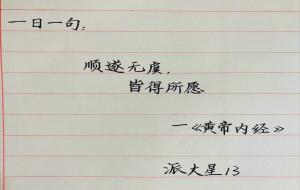 一日一句:
顺遂无虞,
皆得所愿
—《黄帝内经》
派大星13